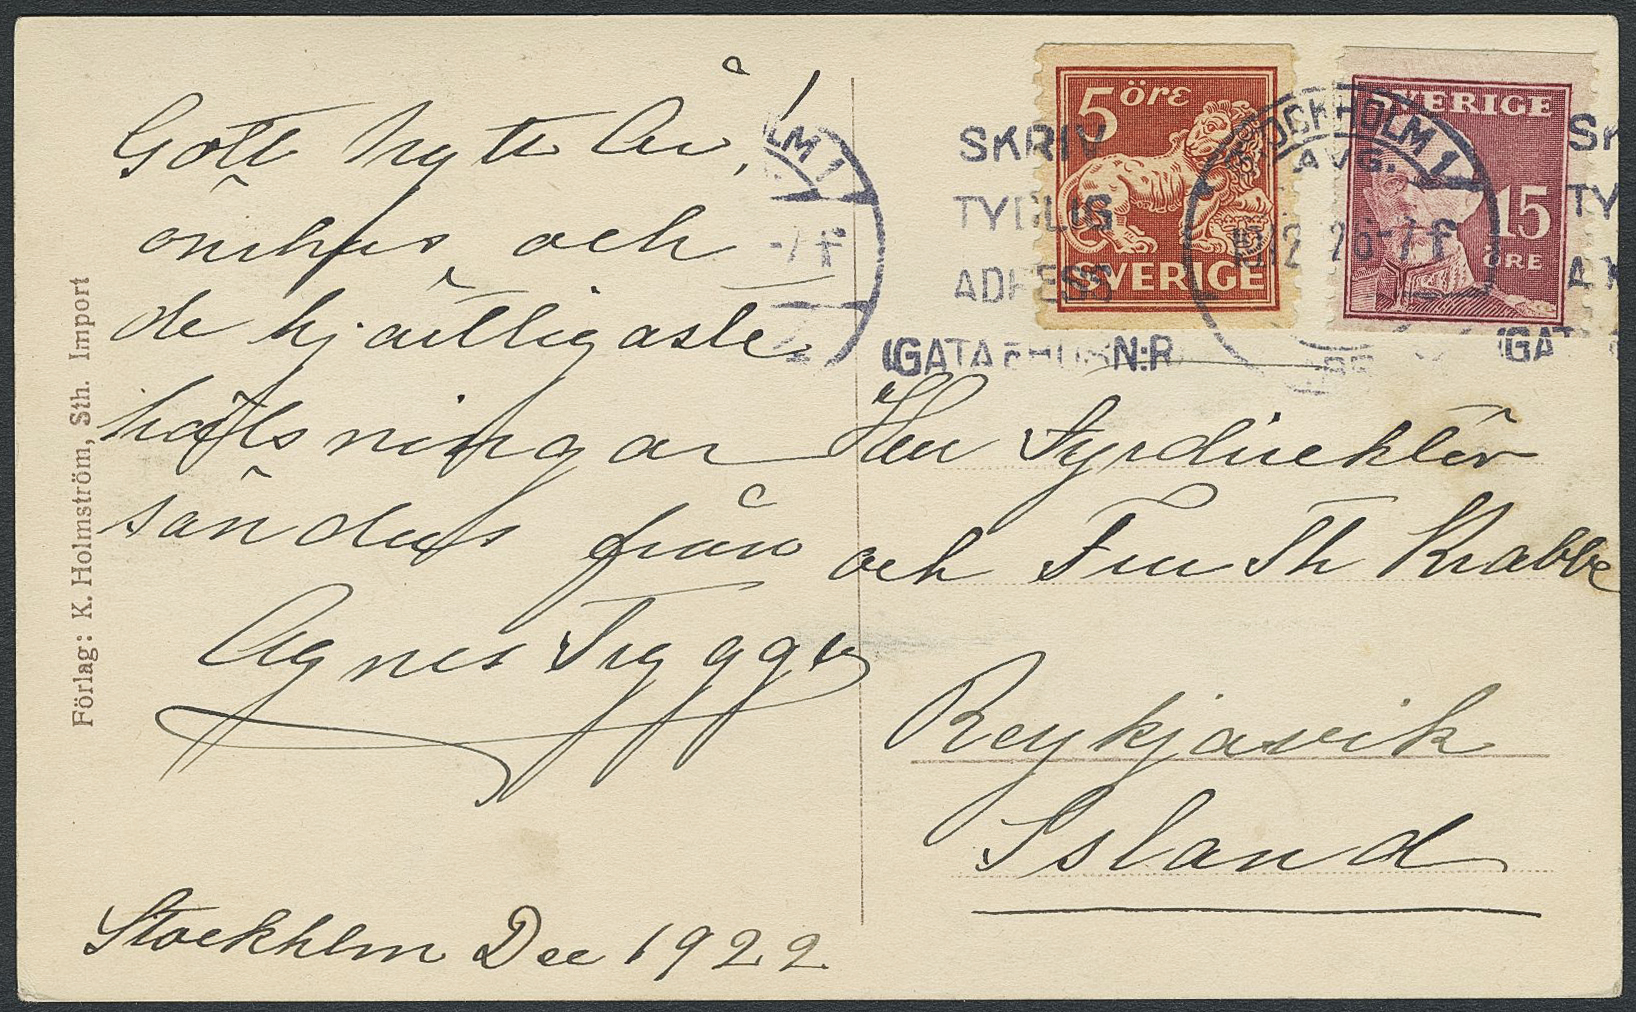 Gott nytt År!
önskas och
de hjärtligaste
hälsningar
sändes från
Agnes Trygger
Stockholm Dec 1922
Förlag: K. Holmström, Sth. Import
5 öre
SVERIGE
SVERIGE
15
ÖRE
STOCKHOLM 1
AVG.
LM 1
-7 F
26-7 F
SKRIV
TYDLIG
ADRESS
(GATA HUSN:R
SK
TY
(GAT
Herr Fyrdirektör
och Fru Th Krabbe
Reykjavik
Island